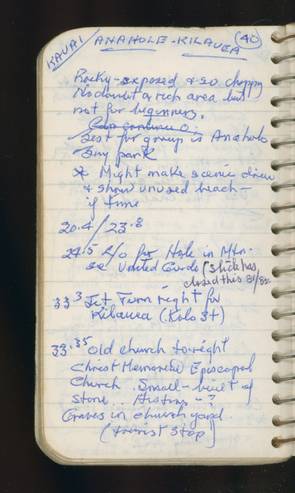 KAUAI / ANAHOLE - KILAUEA (40)
Rocky - exposed & so choppy
No doubt a rich area but
not for beginners.
Best for group is Anahola
Bay park
* Might make scenic drive
& show unused beach -
if time
20.4 / 23.8
24.5 L/O for Hole in Mtn.
see United Guide (slide has
closed this 81/82
33.3 Jct Turn right for
Kilauea (Kolo St)
33.35 Old church to right
Christ Memorial Episcopal
Church. Small - built of
stone. History - ?
Graves in church yard.
(tourist stop)